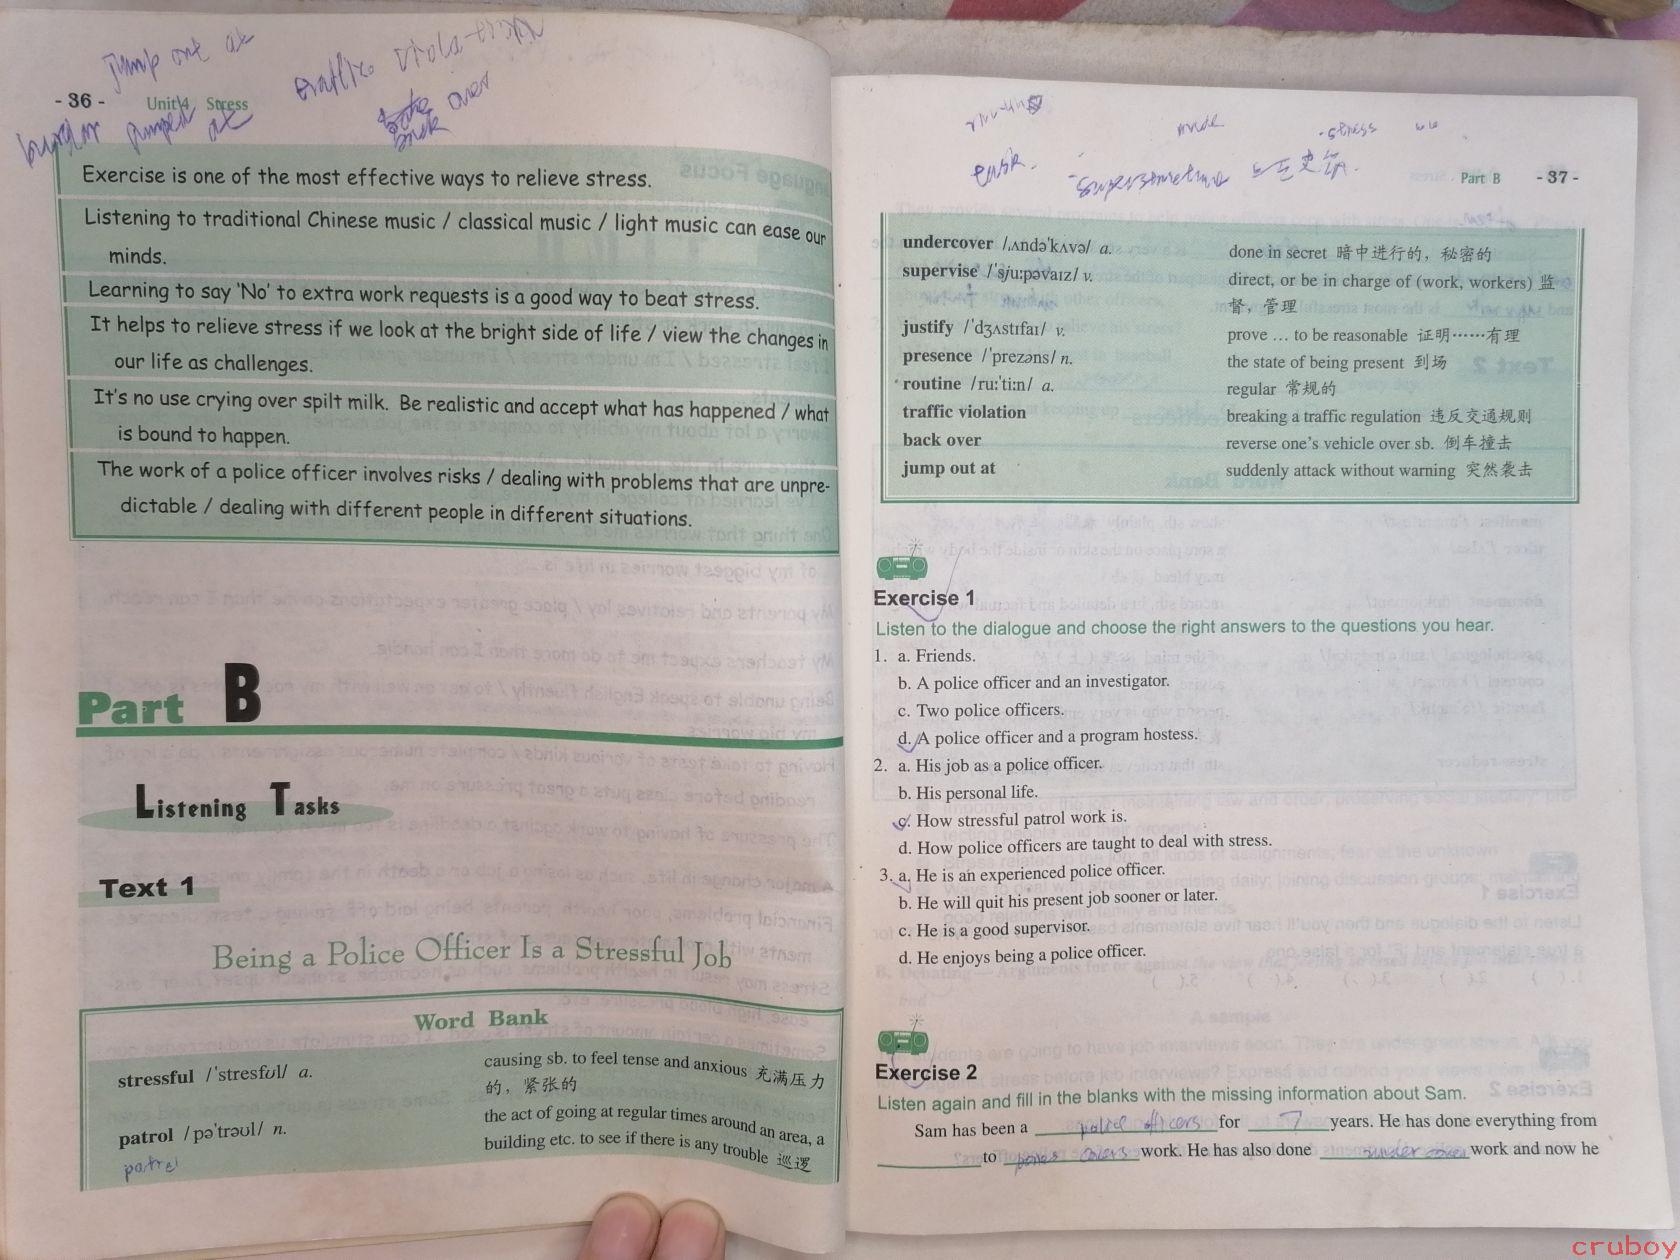 jump out at
traffic violation
- 36 -
Unit 4 Stress
jumped at
over
back
Exercise is one of the most effective ways to relieve stress.
Listening to traditional Chinese music / classical music / light music can ease our
minds.
Learning to say 'No' to extra work requests is a good way to beat stress.
It helps to relieve stress if we look at the bright side of life / view the changes in
our life as challenges.
It's no use crying over spilt milk. Be realistic and accept what has happened / what
is bound to happen.
The work of a police officer involves risks / dealing with problems that are unpre-
dictable / dealing with different people in different situations.
Part B
Listening Tasks
Text 1
Being a Police Officer Is a Stressful Job
Word Bank
stressful /ˈstresfʊl/ a.
causing sb. to feel tense and anxious 充满压力
的，紧张的
patrol /pəˈtrəʊl/ n.
the act of going at regular times around an area, a
building etc. to see if there is any trouble 巡逻
patrol
stress
task
Part B
- 37 -
undercover /ˌʌndəˈkʌvə/ a.
done in secret 暗中进行的，秘密的
supervise /ˈsjuːpəvaɪz/ v.
direct, or be in charge of (work, workers) 监
督，管理
justify /ˈdʒʌstɪfaɪ/ v.
prove … to be reasonable 证明……有理
presence /ˈprezəns/ n.
the state of being present 到场
routine /ruːˈtiːn/ a.
regular 常规的
traffic violation
breaking a traffic regulation 违反交通规则
back over
reverse one's vehicle over sb. 倒车撞击
jump out at
suddenly attack without warning 突然袭击
Exercise 1
Listen to the dialogue and choose the right answers to the questions you hear.
1. a. Friends.
b. A police officer and an investigator.
c. Two police officers.
d. A police officer and a program hostess.
2. a. His job as a police officer.
b. His personal life.
c. How stressful patrol work is.
d. How police officers are taught to deal with stress.
3. a. He is an experienced police officer.
b. He will quit his present job sooner or later.
c. He is a good supervisor.
d. He enjoys being a police officer.
Exercise 2
Listen again and fill in the blanks with the missing information about Sam.
Sam has been a police officers for 7 years. He has done everything from
to work. He has also done under cover work and now he
cruboy